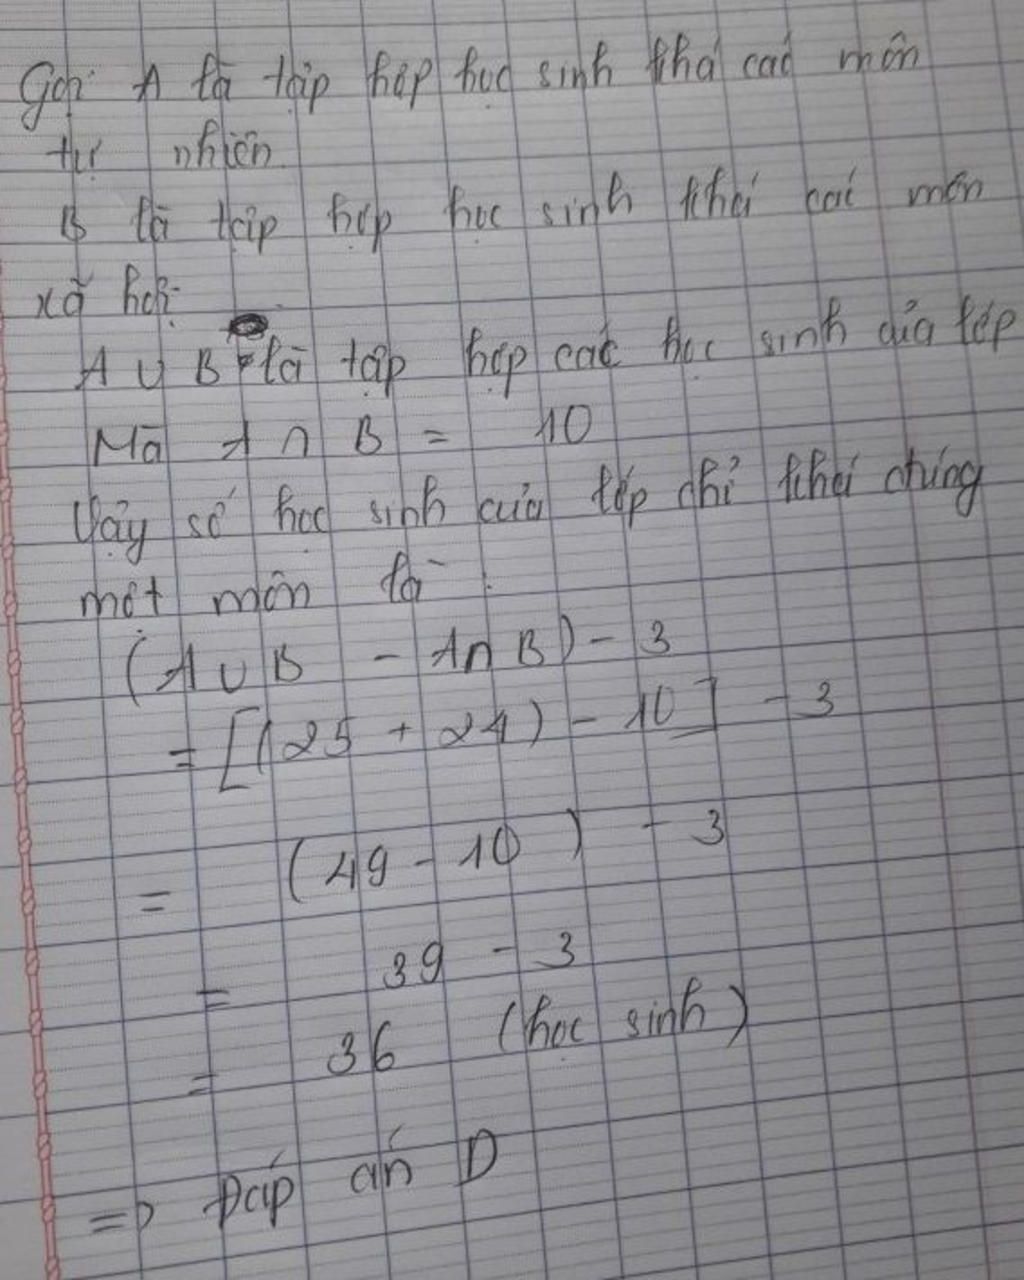 Gọi A là tập hợp học sinh khá các môn
tự nhiên
B là tập hợp học sinh khá các môn
xã hội
A ∪ B là tập hợp các học sinh của lớp
Mà A ∩ B = 10
Vậy số học sinh của lớp chỉ khá đúng
một môn là :
(A ∪ B - A ∩ B) - 3
= [(25 + 24) - 10] - 3
= (49 - 10) - 3
= 39 - 3
= 36 (học sinh)
=> Đáp án D